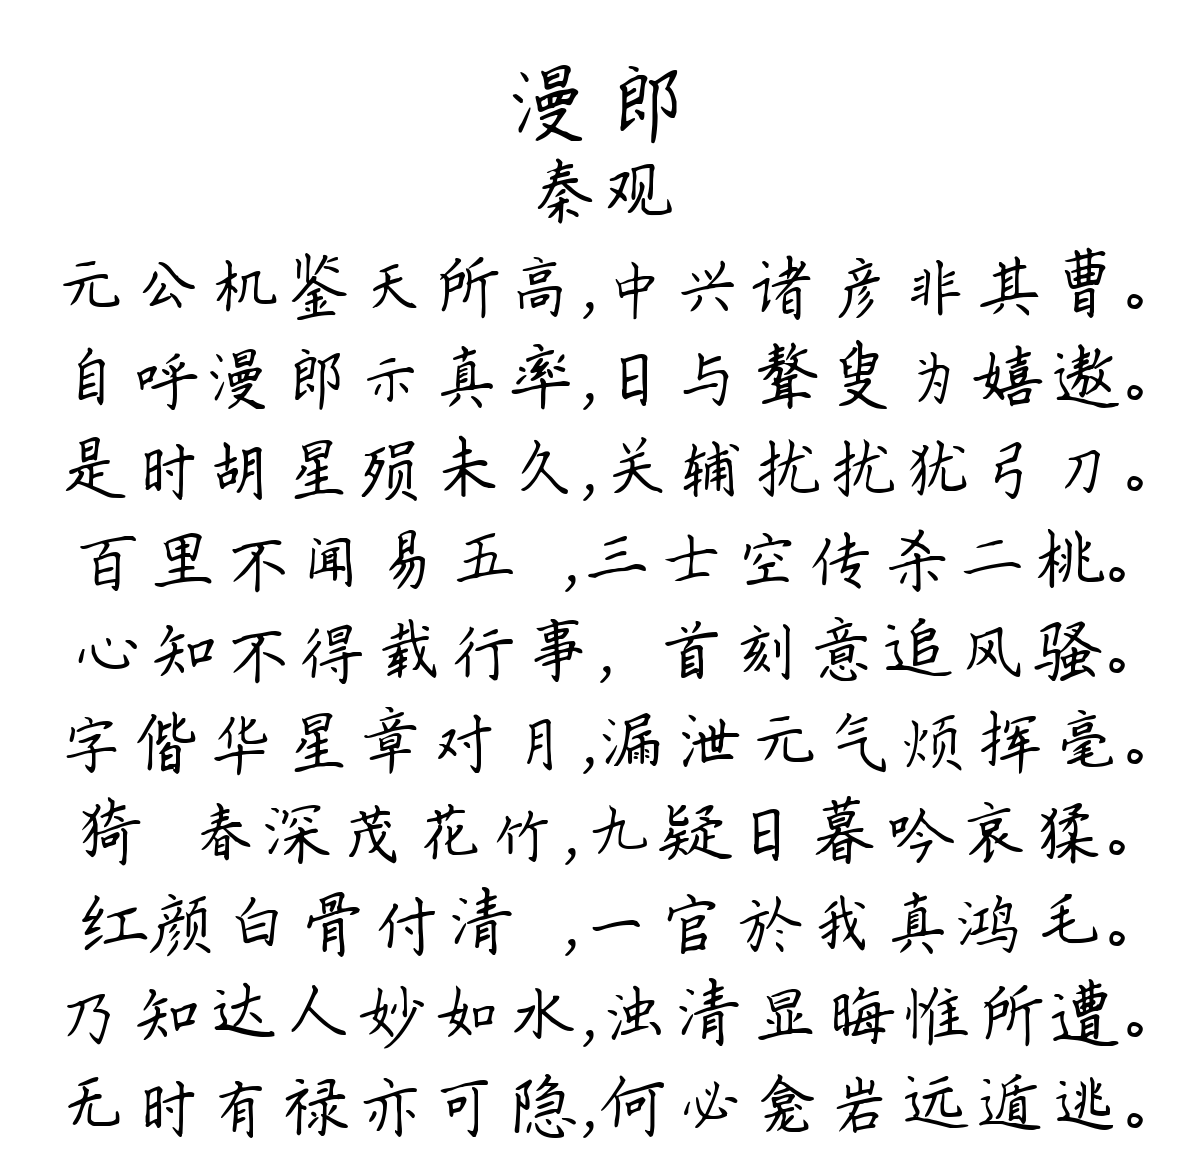 漫郎
秦观
元公机鉴天所高,中兴诸彦非其曹。
自呼漫郎示真率,日与聱叟为嬉遨。
是时胡星殒未久,关辅扰扰犹弓刀。
百里不闻易五 ,三士空传杀二桃。
心知不得载行事,首刻意追风骚。
字偕华星章对月,漏泄元气烦挥毫。
猗 春深茂花竹,九疑日暮吟哀猱。
红颜白骨付清 ,一官於我真鸿毛。
乃知达人妙如水,浊清显晦惟所遭。
无时有禄亦可隐,何必龛岩远遁逃。